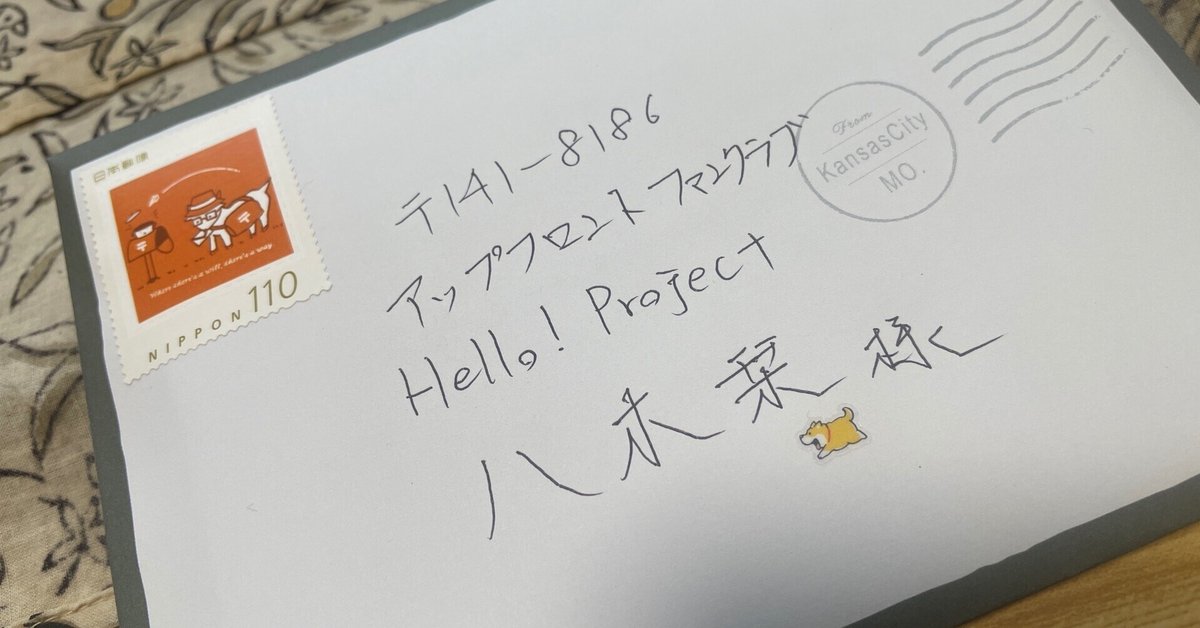 日本郵便
〒
〒
Where there's a will, there's a way
NIPPON 110
〒141-8186
アップフロントファンクラブ
Hello! Project
八木栞様
From
KansasCity
MO.